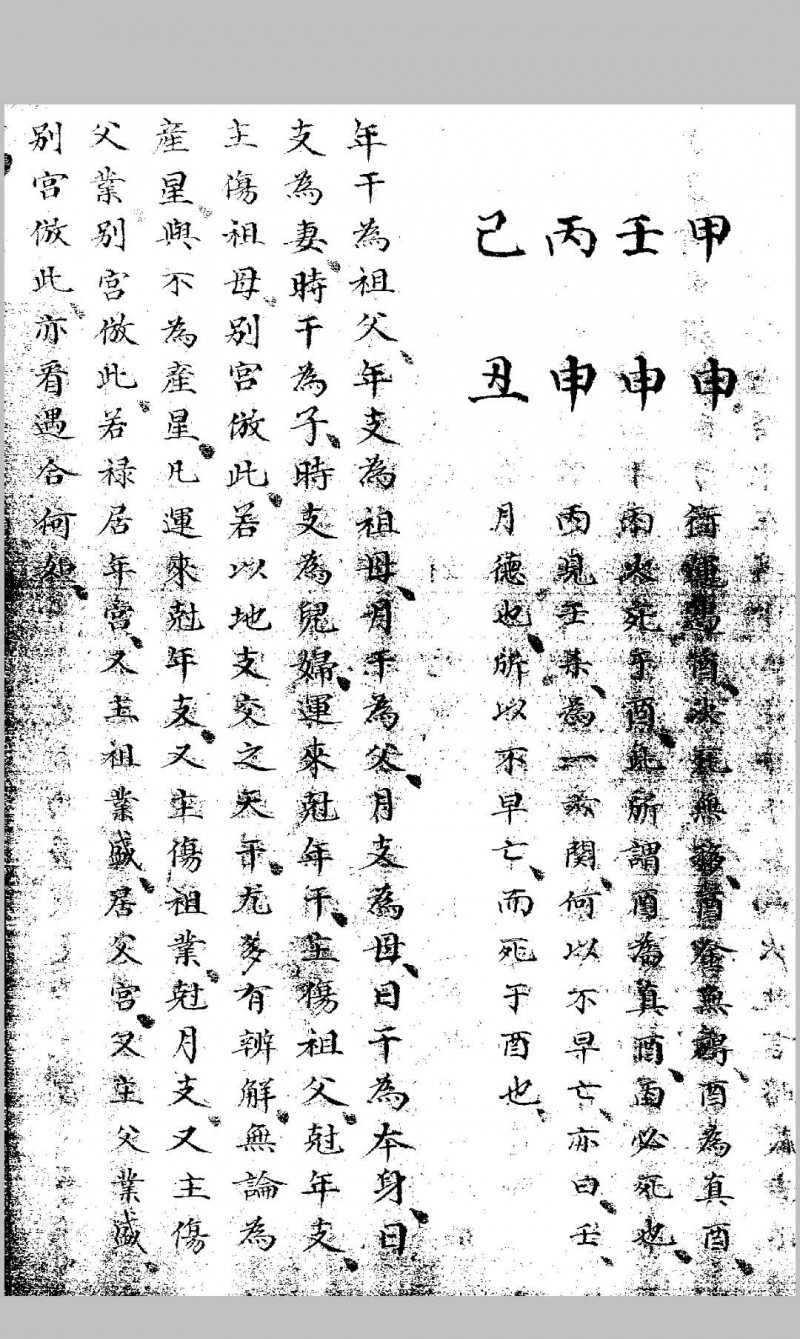 甲申 運遇酉決死無移酉無酉為真酉
壬申 丙火死于酉此所謂酉為真酉丙必死也
丙申 丙見壬杀為一關何以不早亡亦曰壬
己丑 月德也所以不早亡而死于酉也
年干為祖父年支為祖母月干為父月支為母日干為本身日
支為妻時干為子時支為兒婦運來尅年干主傷祖父尅年支
主傷祖母別宮倣此若以地支交之天干尤多有辨解無論為
產星與不為產星凡運來尅年支又主傷祖業尅月支又主傷
父業別宮倣此若祿居年宮又主祖業盛居父宮又主父業盛
別宮倣此亦看遇合何如